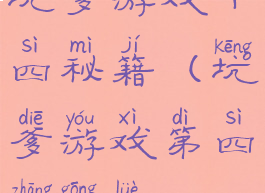 坑爹游戏十
sì mì jí kēng
四秘籍(坑
diē yóu xì dì sì
爹游戏第四
zhāng gōng lüè